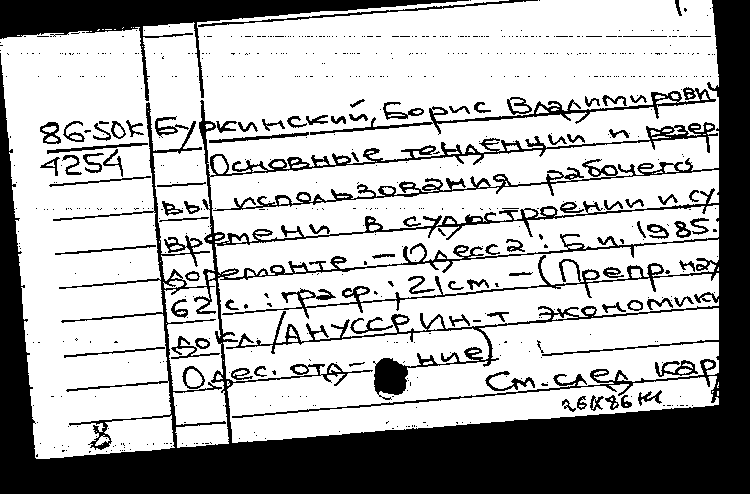 1.
86-50К Буркинский, Борис Владимирович
4254 Основные тенденции и резер-
вы использования рабочего
времени в судостроении и су-
доремонте. – Одесса : Б.и., 1985.
62 с. : граф. ; 21 см. – (Препр. нау
докл. / АН УССР, Ин-т экономики
Одес. отд-ние)
См. след. кар
8